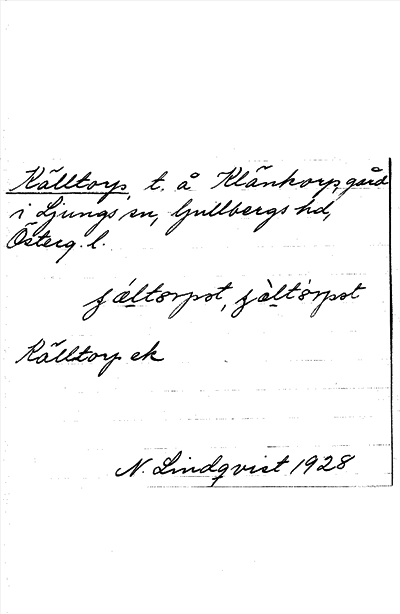 Källtorp, t. å Klänkorp, gård
i Ljungs sn, Gullbergs hd,
Österg. l.
jæ̀ltorpət, jæ̀ltòrpət
Källtorp ek
N. Lindqvist 1928